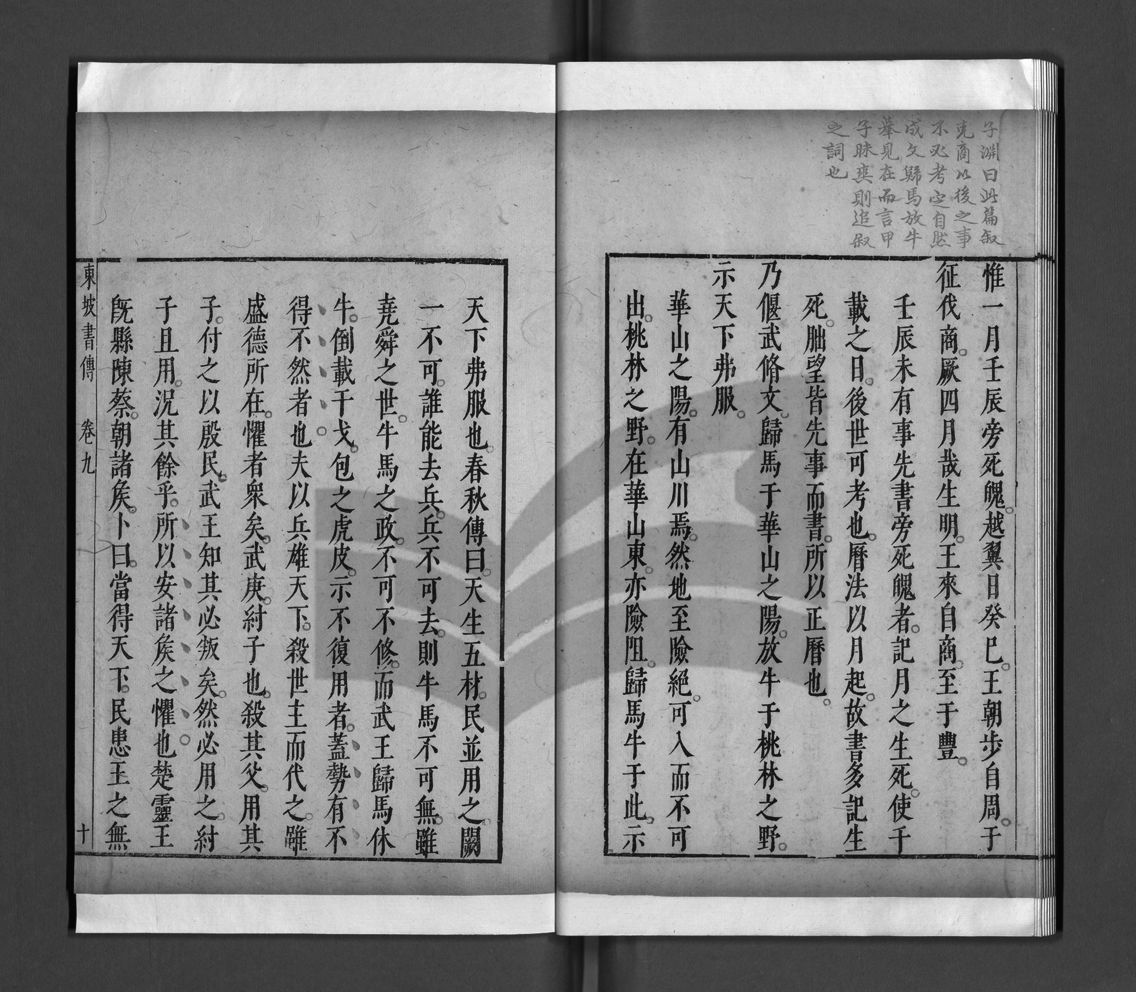 子淵曰此篇叙
克商以後之事
不必考定自然
成文歸馬放牛
葢見在而言甲
子昧爽則追叙
之詞也
惟一月壬辰旁死魄。越翼日癸巳。王朝步自周。于
征伐商。厥四月哉生明。王來自商。至于豐。
壬辰未有事先書旁死魄者。記月之生死。使千
載之日。後世可考也。曆法以月起。故書多記生
死。朏望皆先事而書。所以正曆也。
乃偃武脩文。歸馬于華山之陽。放牛于桃林之野。
示天下弗服。
華山之陽。有山川焉。然地至險絕。可入而不可
出。桃林之野。在華山東。亦險阻。歸馬牛于此。示
天下弗服也。春秋傳曰。天生五材。民並用之。闕
一不可。誰能去兵。兵不可去。則牛馬不可無。雖
堯舜之世。牛馬之政。不可不修。而武王歸馬休
牛。倒載干戈。包之虎皮。示不復用者。蓋勢有不
得不然者也。夫以兵雄天下。殺世主而代之。雖
盛德所在。懼者衆矣。武庚。紂子也。殺其父。用其
子。付之以殷民。武王知其必叛矣。然必用之。紂
子且用。況其餘乎。所以安諸矦之懼也。楚靈王
旣縣陳蔡。朝諸矦。卜曰。當得天下。民患王之無
東坡書傳 卷九 十